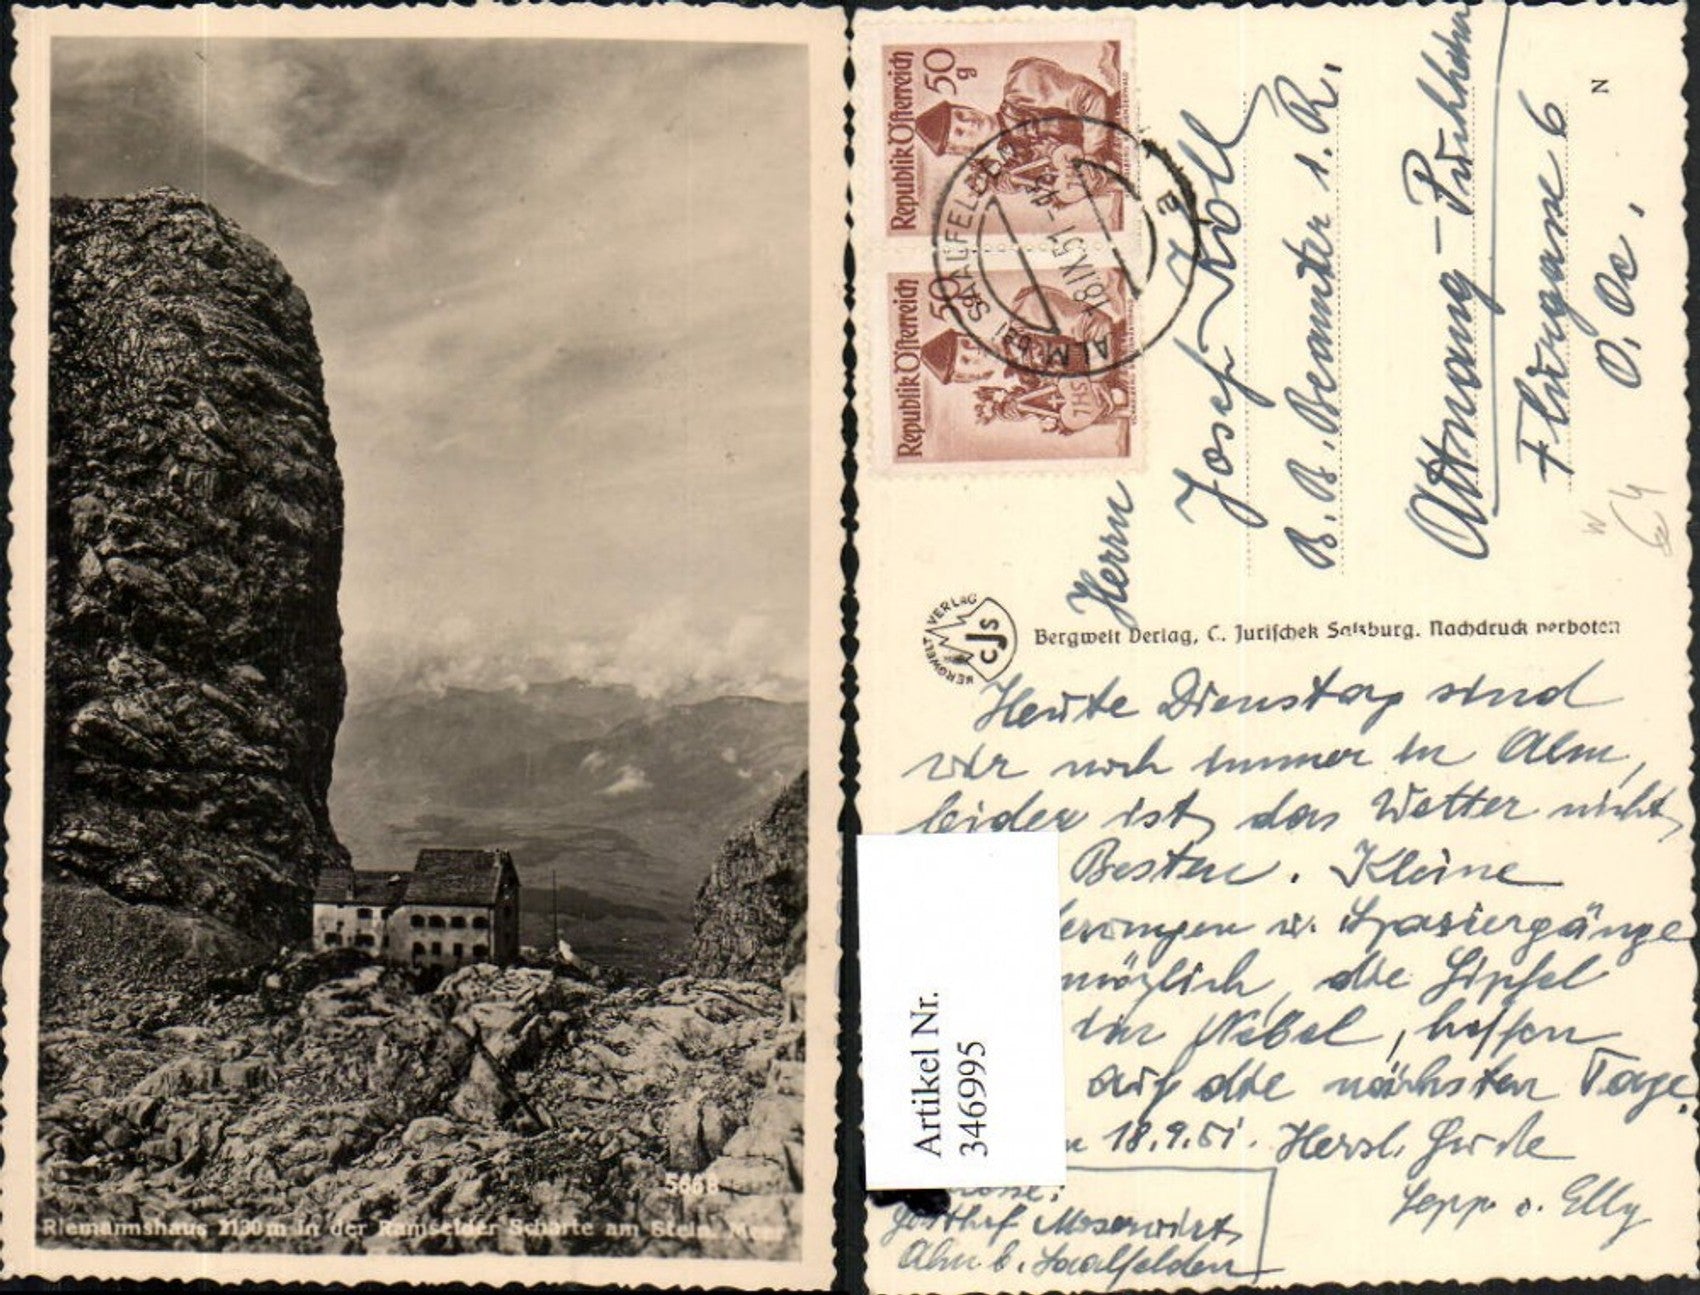 5668
Riemannshaus 2130 m in der Ramseider Scharte am Stein. Meer
Republik Österreich
50 g
Republik Österreich
50
ALM bei SAALFELDEN
18.IX.51
a
Herrn
Josef Köll
B. B. Beamter i. R.
Attnang-Puchheim
Flurgasse 6
O. Oe.
N
BERGWELT VERLAG
CJS
Bergwelt Verlag, C. Jurischek Salzburg. Nachdruck verboten
Heute Dienstag sind
wir noch immer in Alm,
leider ist das Wetter nicht
Besten. Kleine
u. Spaziergänge
möglich, die Gipfel
im Nebel, hoffen
auf die nächsten Tage.
18.9.51. Herzl. Grüße
Sepp u. Elly
Gasthof Moserwirt,
Alm b. Saalfelden
Artikel Nr.
346995